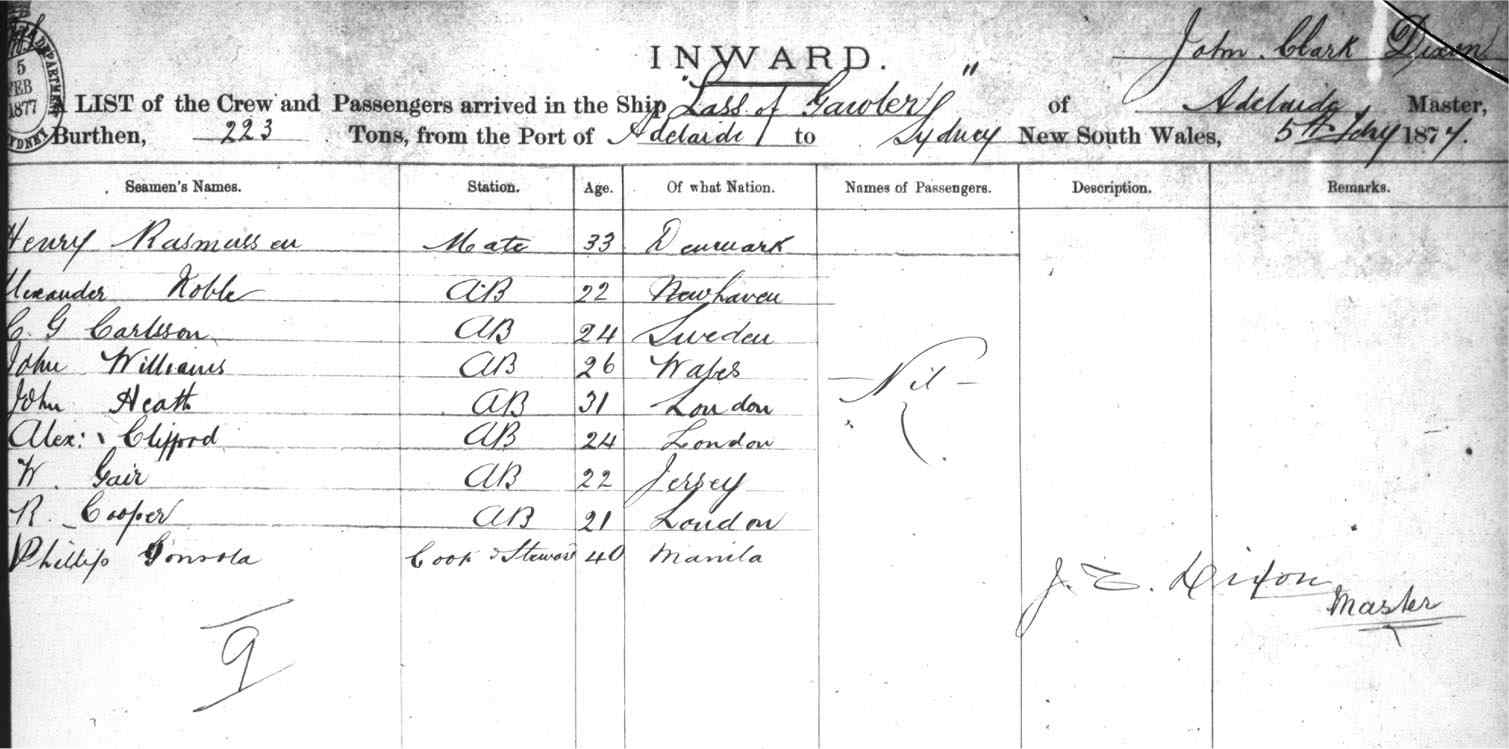 DEPARTMENT
5
FEB
1877
SYDNEY
INWARD.
John Clark Dixon
A LIST of the Crew and Passengers arrived in the Ship "Lass of Gawler" of Adelaide Master,
Burthen, 223 Tons, from the Port of Adelaide to Sydney New South Wales, 5th Febry 1877.
Seamen's Names. Station. Age. Of what Nation. Names of Passengers. Description. Remarks.
Henry Rasmussen Mate 33 Denmark
Alexander Noble AB 22 Newhaven
C. G Carlsson AB 24 Sweden
John Williams AB 26 Wales
- Nil -
John Heath AB 31 London
Alex: Clifford AB 24 London
W. Gair AB 22 Jersey
R. Cooper AB 21 London
Phillip Gonsola Cook & Steward 40 Manila
J. C. Dixon
Master
9